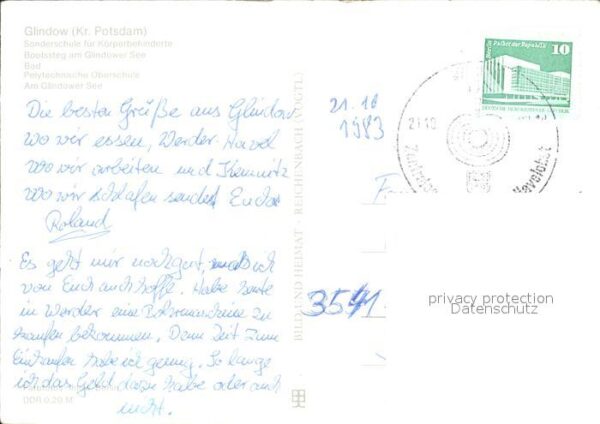 Glindow (Kr. Potsdam)
Sonderschule für Körperbehinderte
Bootssteg am Glindower See
Bad
Polytechnische Oberschule
Am Glindower See
Die besten Grüße aus Glindow
wo wir essen, Werder-Havel
wo wir arbeiten und Kemnitz
wo wir schlafen sendet Euch
Roland
Es geht mir noch gut, was ich
von Euch auch hoffe. Habe heute
in Werder eine Bohrmaschine zu
kaufen bekommen. Denn Zeit zum
Einkaufen habe ich genug. So lange
ich das Geld dazu habe oder auch
nicht.
DDR 0,20 M
BILD UND HEIMAT · REICHENBACH (VOGTL)
21.10
1983
Berlin Palast der Republik
10
21.10.
Havelobst
3541
privacy protection
Datenschutz